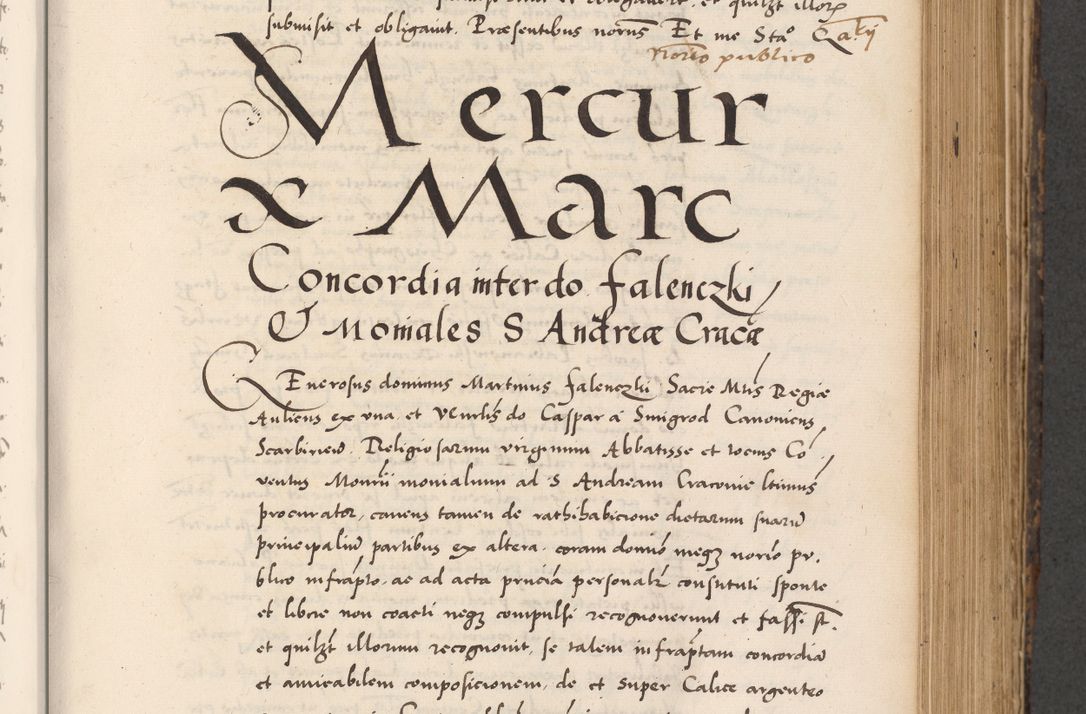 submisit et obligavit. Præsentibus norūs Et me Sta°
norio publico
Mercur
x Marc
Concordia inter do falenczki
& Moniales S Andreæ Cracæ
GEnerosus dominus Martinus falenczki Sacre Mtis Regiæ
Aulicus ex una, et Vēnrlis do Caspar a Smigrod Canonicus
Scarbirien̄. Religiosarum virginum Abbatisse et tocius Cō
ventus Monrii monialium ad S Andream Cracovie ltimus
procurator, cavens tamen de rathihabicione dictarum suarū
principaliū partibus ex altera. coram domīo meqȝ norio pu.
blico infrapto, ac ad acta pr̄ncia personalr constituti sponte
et libere non coacti neqȝ compulsi recognoverunt et fassi st.
et quilȝt illorum recognovit, se talem infraptam concordiā
et amicabilem composicionem, de et super Calice argenteo